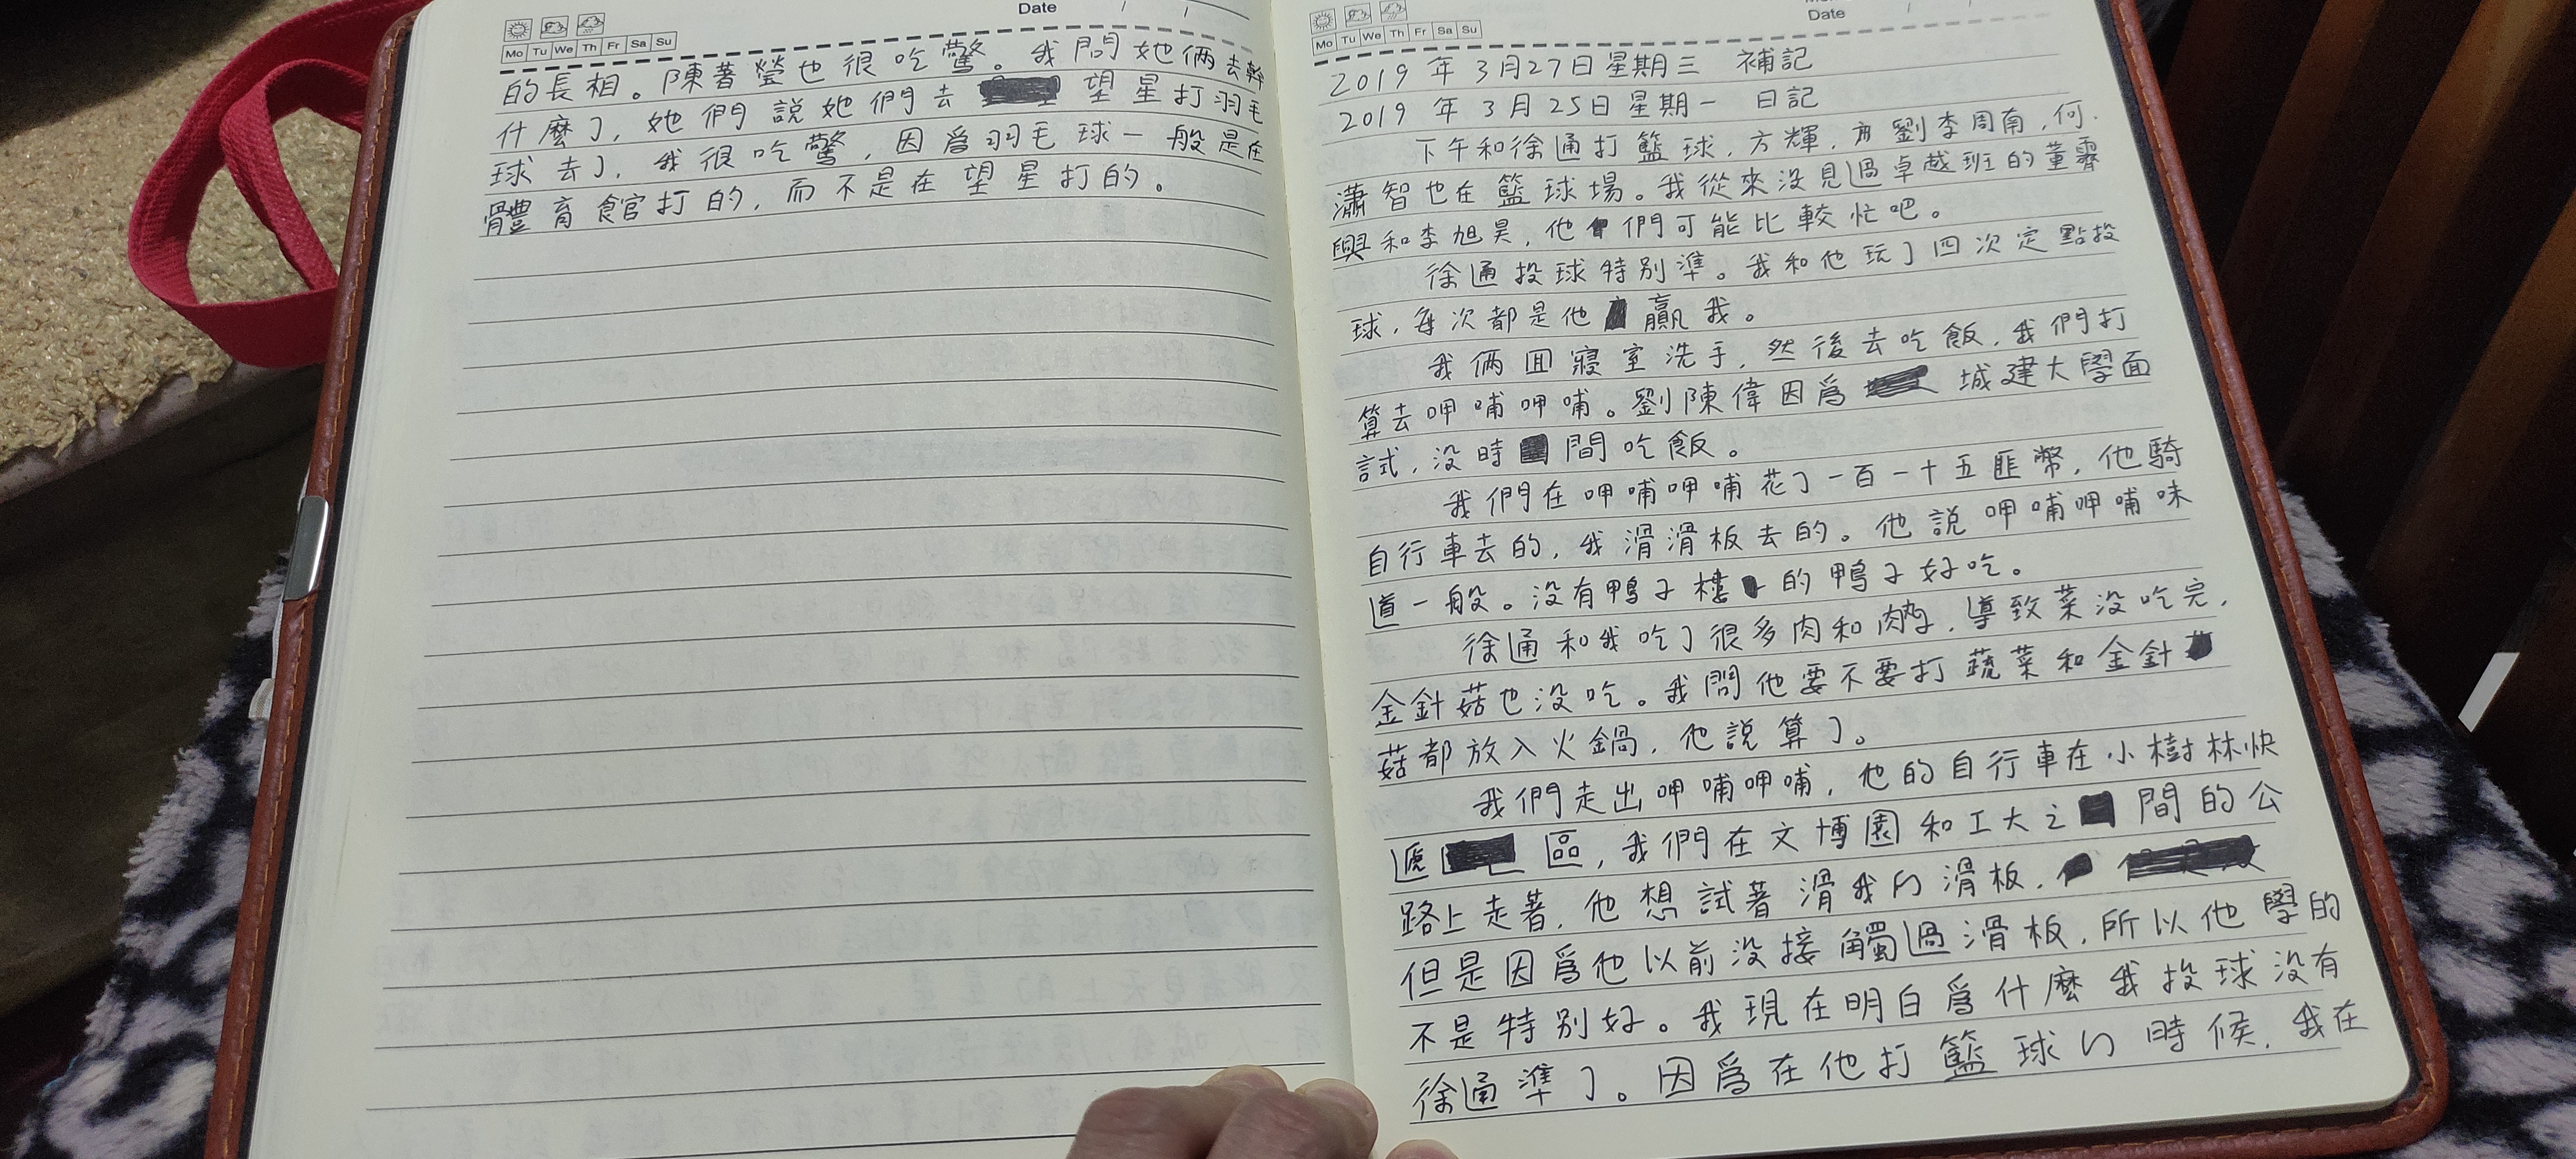 Date / /
Mo Tu We Th Fr Sa Su
的長相。陳著瑩也很吃驚。我問她倆去幹
什麼了，她們說她們去 望星打羽毛
球去了，我很吃驚，因爲羽毛球一般是在
體育館打的，而不是在望星打的。
Date / /
Mo Tu We Th Fr Sa Su
2019年3月27日星期三 補記
2019年3月25日星期一 日記
下午和徐通打籃球，方輝，劉李周南，何
瀟智也在籃球場。我從來没見過卓越班的董霽
興和李旭昊，他們可能比較忙吧。
徐通投球特别準。我和他玩了四次定點投
球，每次都是他贏我。
我倆回寢室洗手，然後去吃飯，我們打
算去呷哺呷哺。劉陳偉因爲 城建大學面
試，没時間吃飯。
我們在呷哺呷哺花了一百一十五匪幣，他騎
自行車去的，我滑滑板去的。他說呷哺呷哺味
道一般。没有鴨子樓的鴨子好吃。
徐通和我吃了很多肉和肉，導致菜没吃完，
金針菇也没吃。我問他要不要打蔬菜和金針
菇都放入火鍋，他說算了。
我們走出呷哺呷哺，他的自行車在小樹林快
遞 區，我們在文博園和工大之間的公
路上走著，他想試著滑我的滑板，
但是因爲他以前没接觸過滑板，所以他學的
不是特别好。我現在明白爲什麼我投球没有
徐通準了。因爲在他打籃球的時候，我在